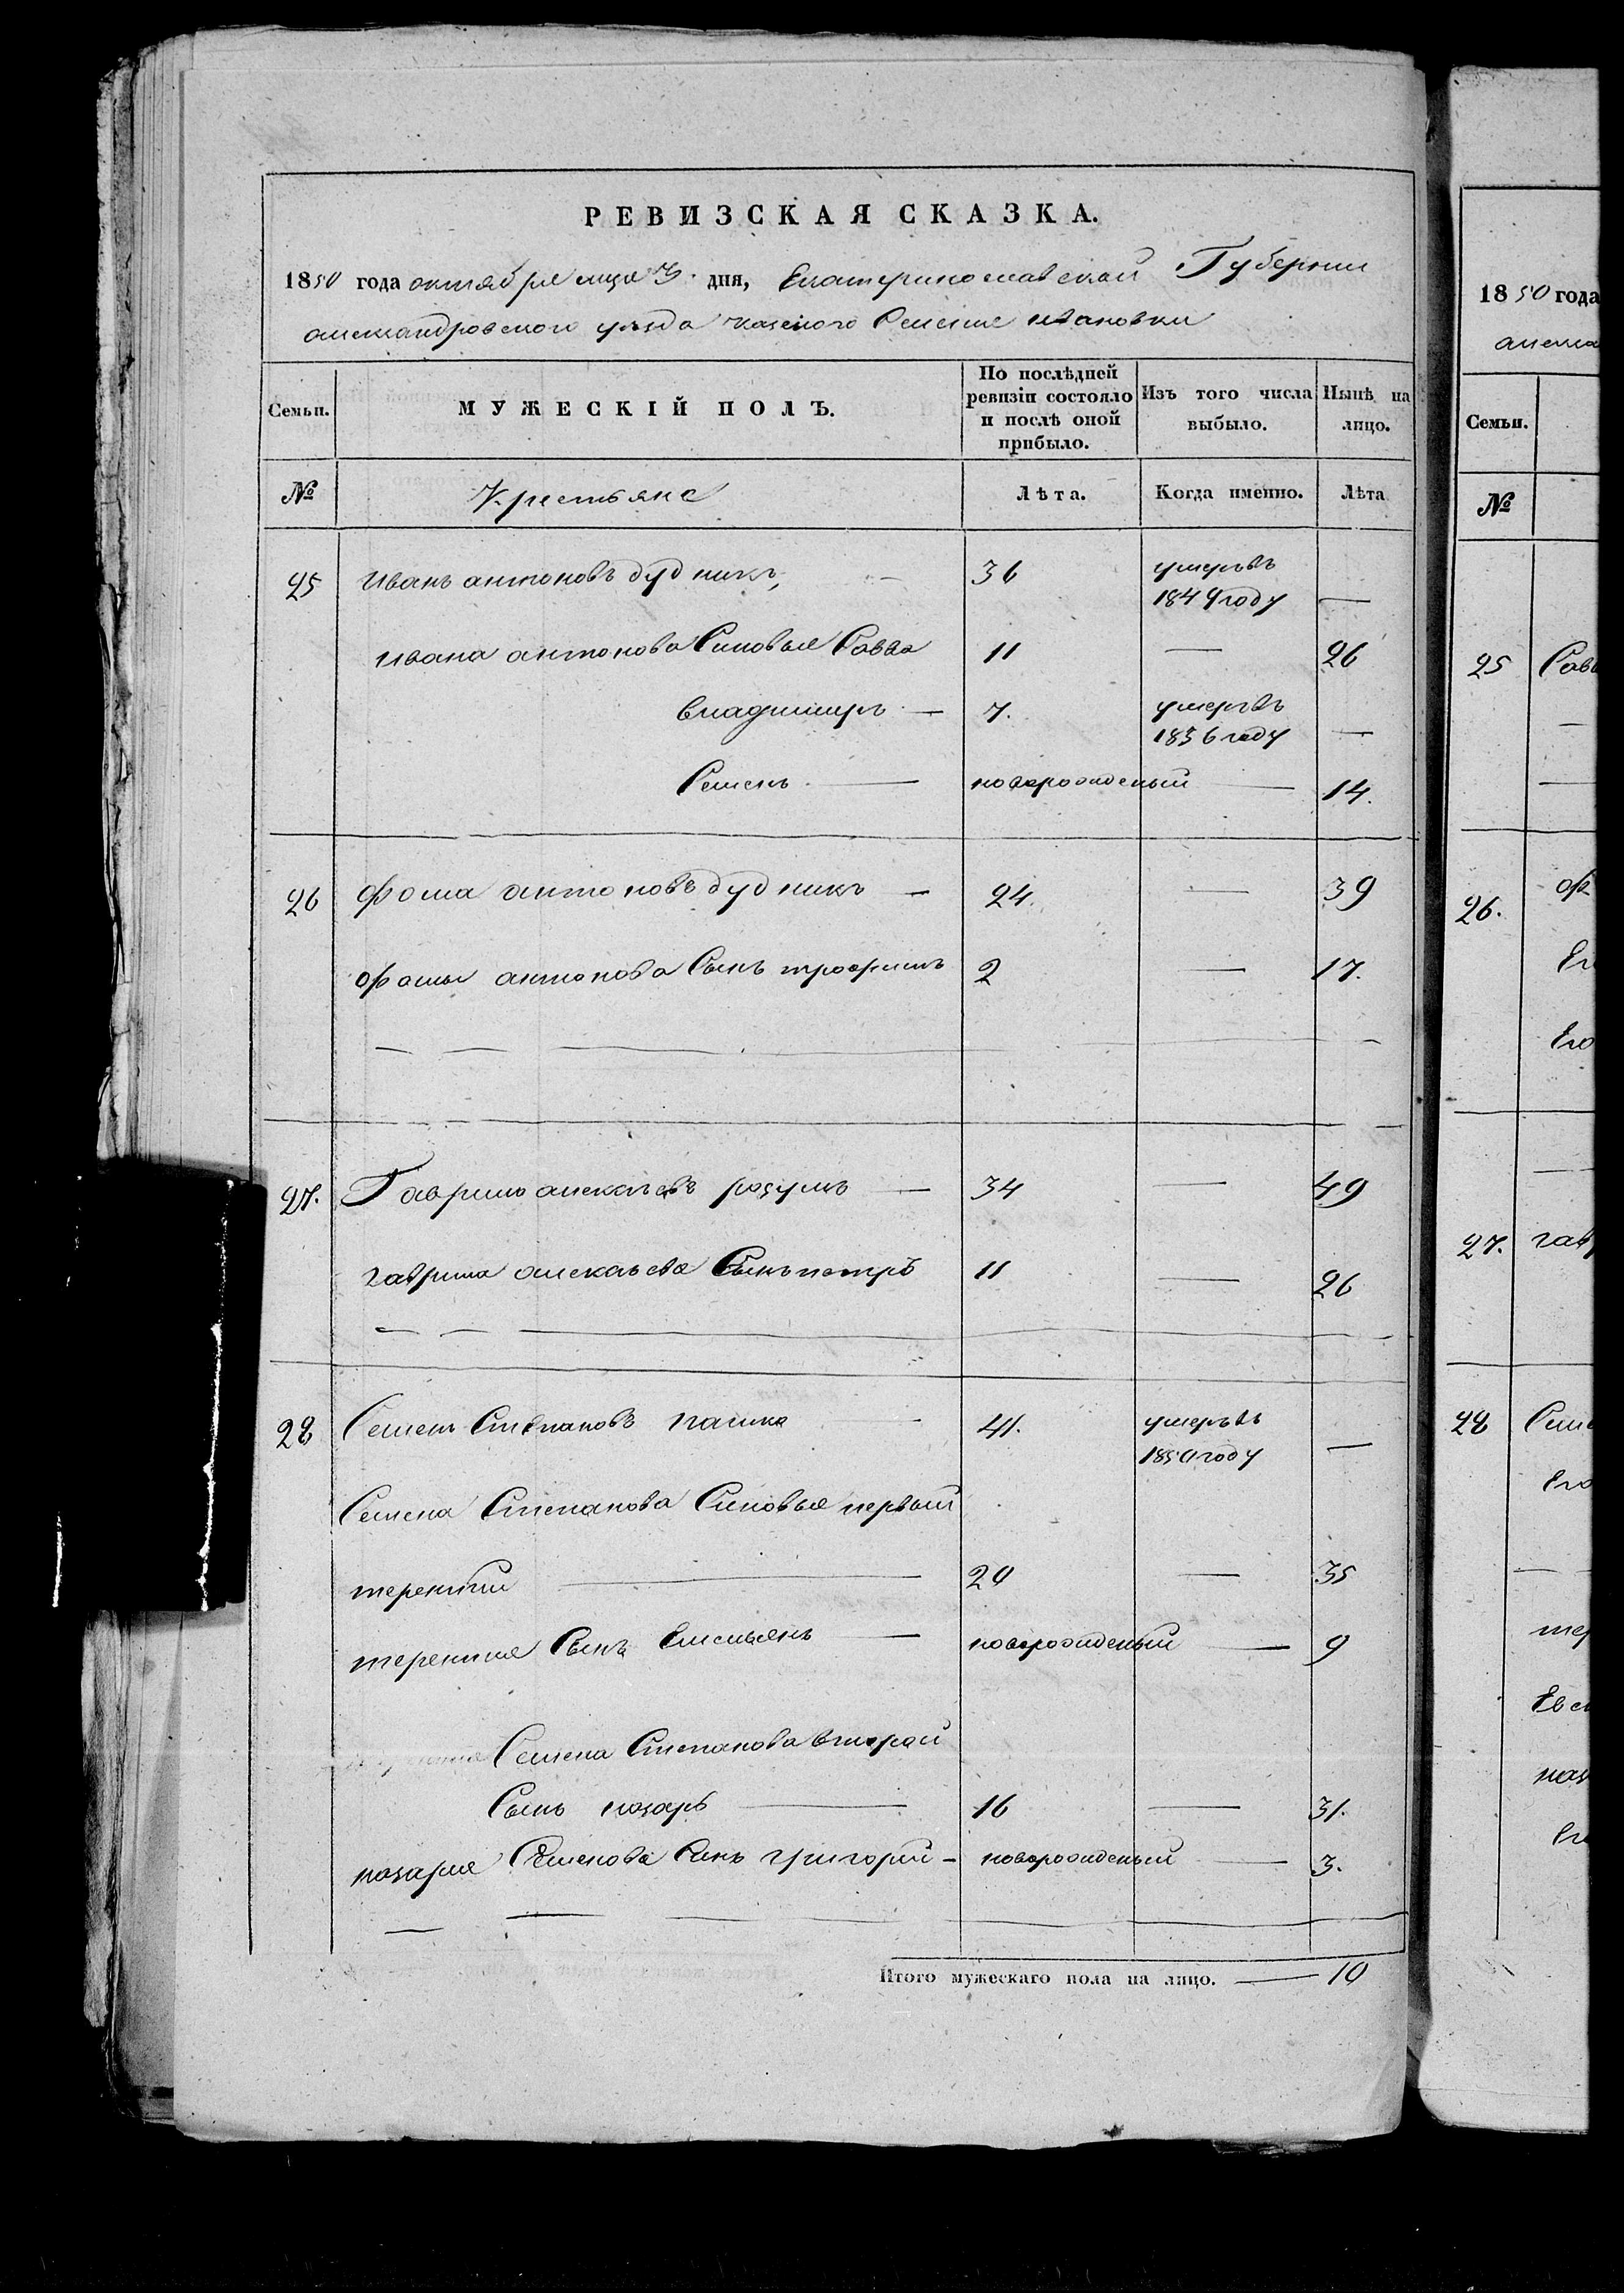 РЕВИЗСКАЯ СКАЗКА.
1850 года октября мца 3 дня, Екатеринославской Губернии
александровского уезда казеного Селение ивановки
Семьи. МУЖЕСКІЙ ПОЛЪ. По послѣдней ревизіи состояло и послѣ оной прибыло. Изъ того числа выбыло. Нынѣ на лицо.
№ Крестьяне Лѣта. Когда именно. Лѣта
25 Иванъ антоновъ дудникъ, — 36 умеръ въ 1849 году —
ивана антонова Синовья Савва 11 — 26
владимиръ — 7. умеръ въ 1836 году —
Семенъ — новорожденый — 14.
26 фома антоновъ дудникъ — 24. — 39
фомы антонова Сынъ трофимъ 2 — 17.
27. Гаврило алексеевъ розумъ — 34 — 49
гаврила алексеева Сынъ петръ 11 — 26
28 Семен Степановъ 41. умеръ въ 1850 году —
Семена Степанова Синовья первый
терентий — 20 — 35
терентия Сынъ Емельянъ — новорожденый — 9
Семена Степанова второй
Сынъ назаръ — 16 — 31.
назария Семенова Синъ григорий — новорожденый — 3.
Итого мужескаго пола на лицо. — 10
1850 года
алекса
Семьи.
№
25 Савв
26. фо
Его
Его
27. гавр
28 Семе
Его
тер
назар
Его